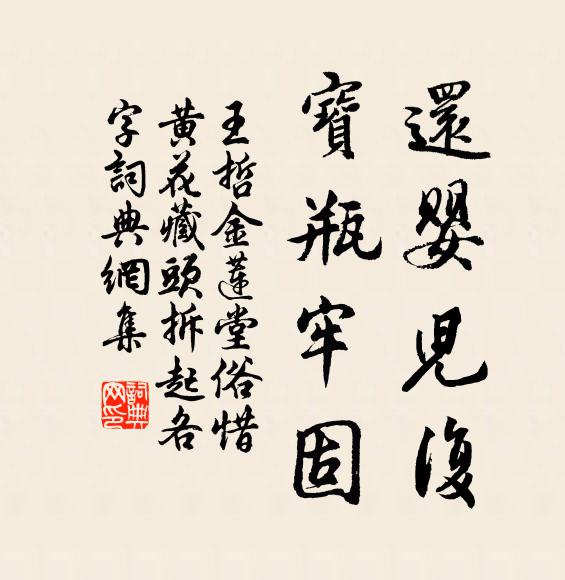 還嬰兒復
寶瓶牢固
王哲金蓮堂俗惜
黄花藏頭拆起各
字詞典網集
詞典
网印